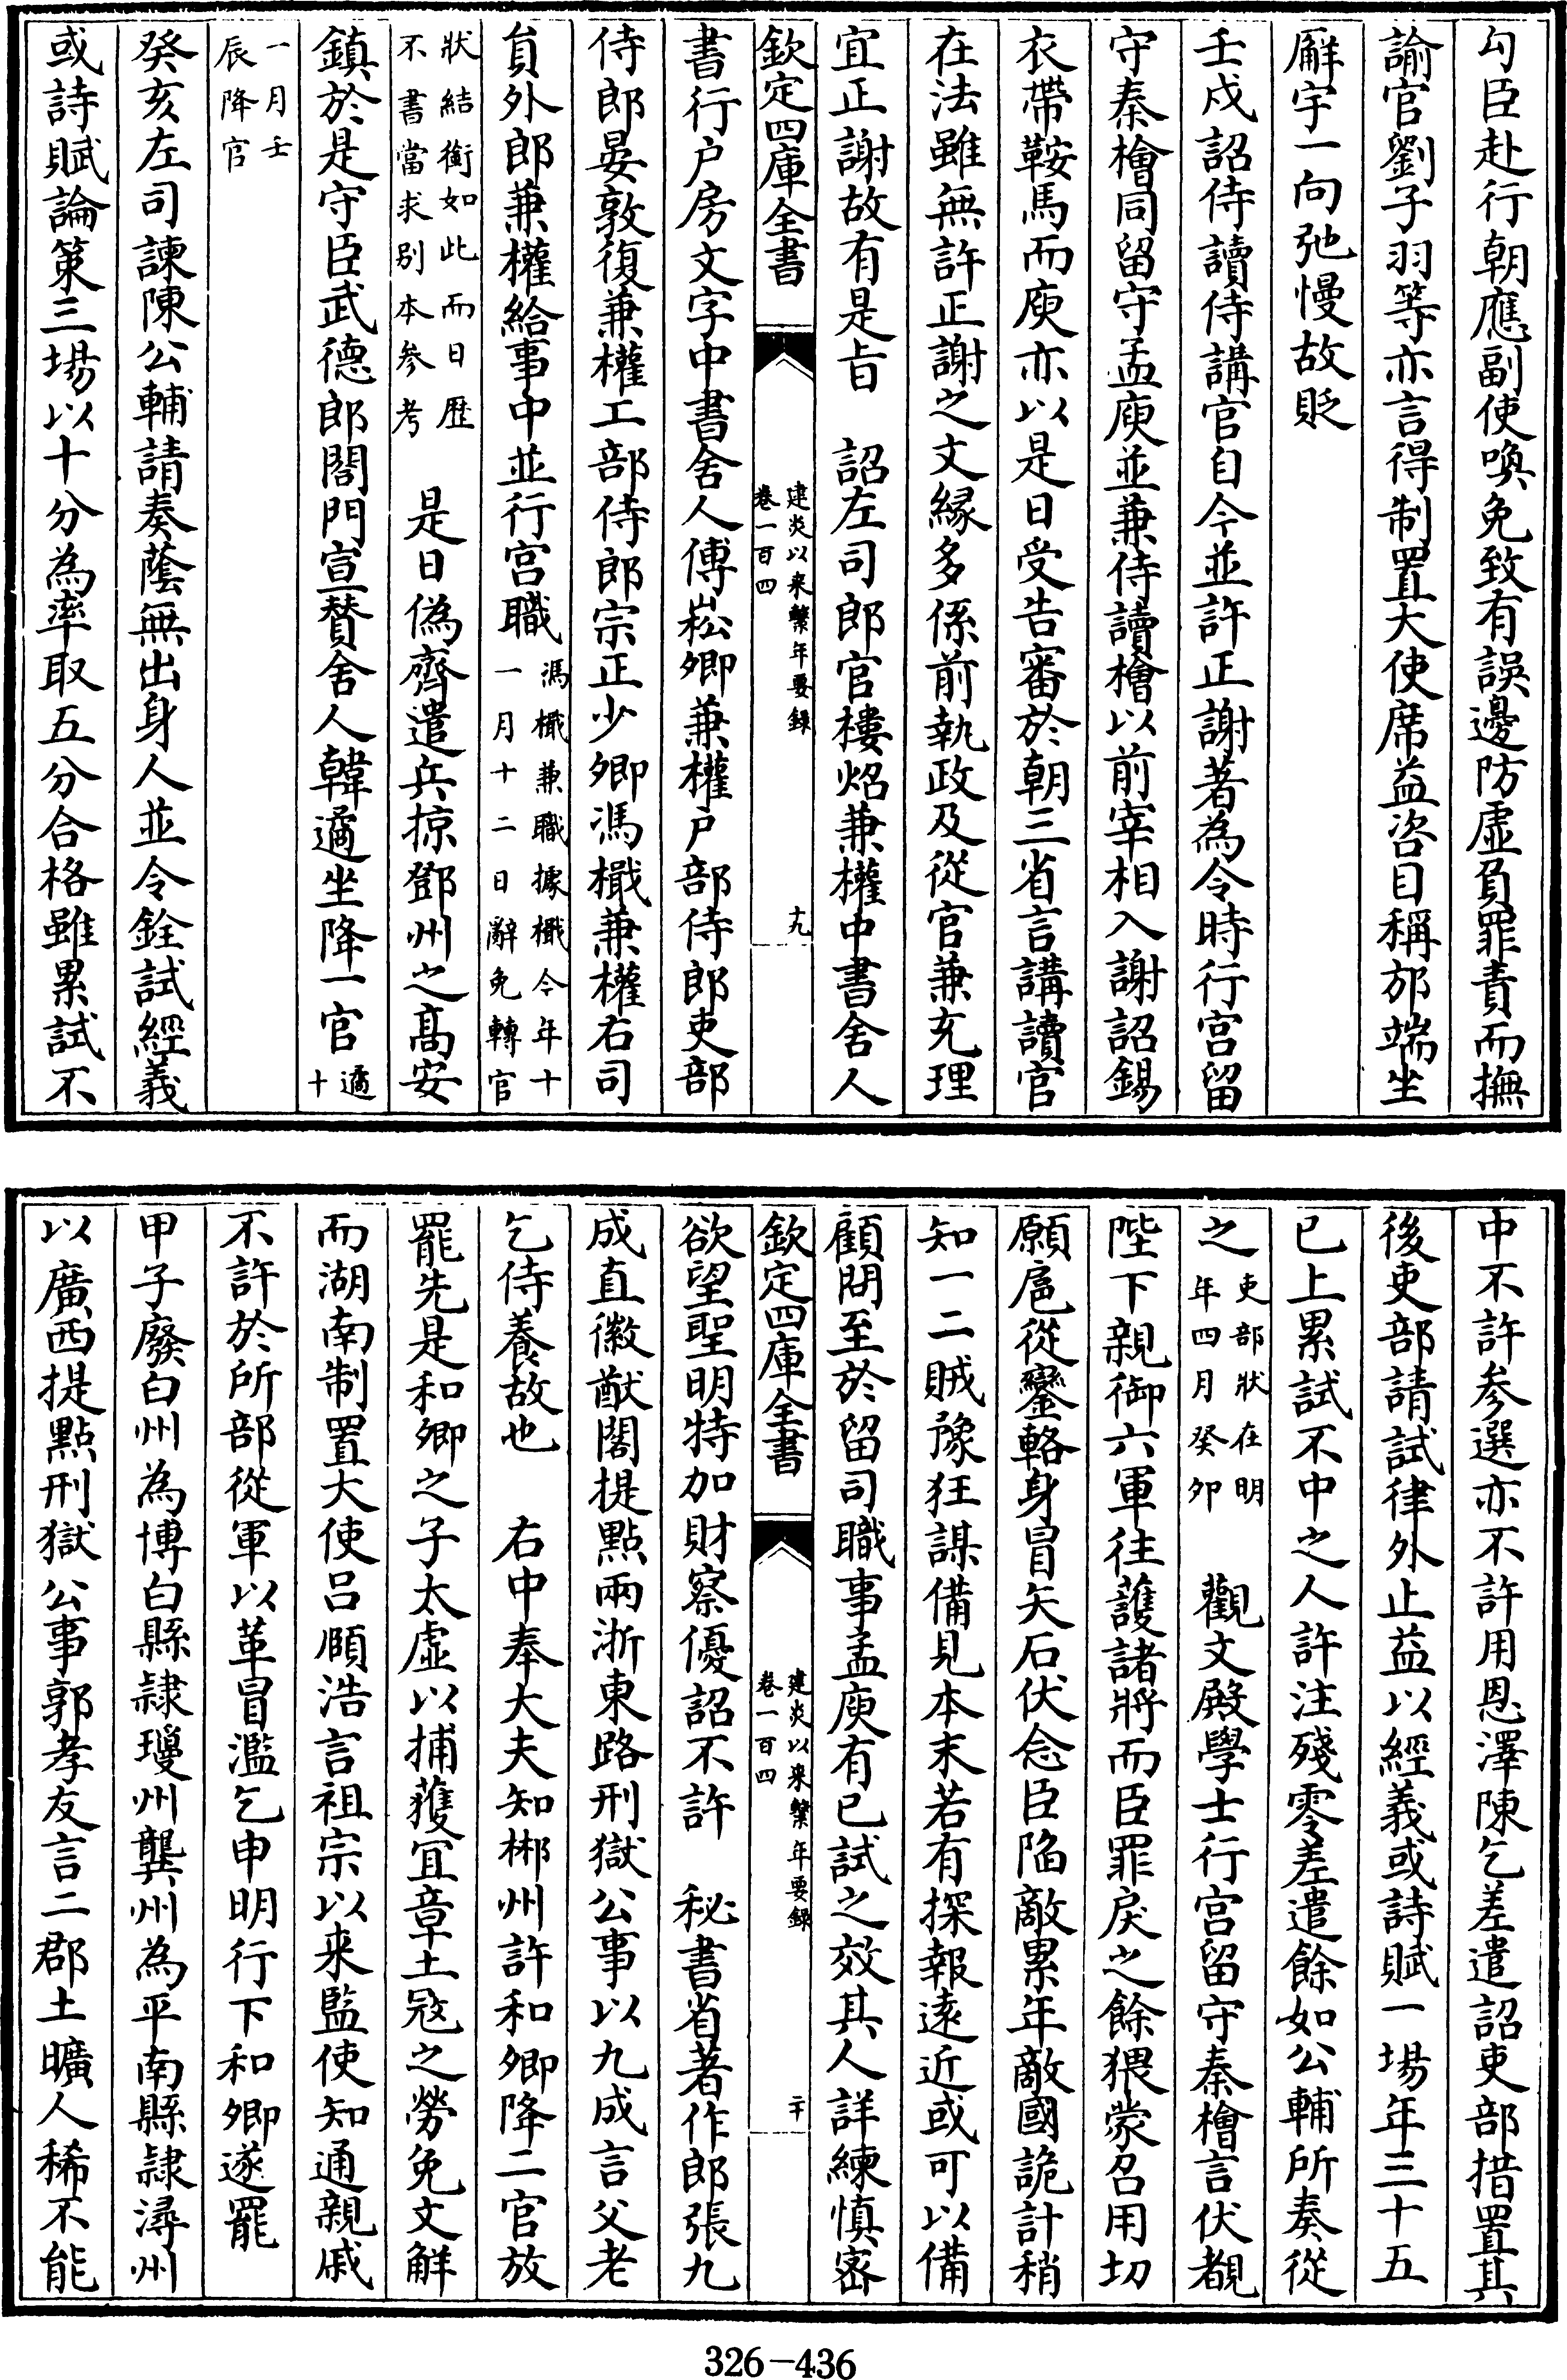 勾臣赴行朝應副使喚免致有誤邊防虛負罪責而撫
諭官劉子羽等亦言得制置大使席益咨目稱邴端坐
廨宇一向弛慢故貶
壬戍詔侍讀侍講官自今並許正謝著為令時行宮留
守秦檜同留守孟庾並兼侍讀檜以前宰相入謝詔錫
衣帶鞍馬而庾亦以是日受告審於朝三省言講讀官
在法雖無許正謝之文緣多係前執政及從官兼充理
宜正謝故有是旨 詔左司郎官樓炤兼權中書舍人
欽定四庫全書 建炎以来繫年要錄 卷一百四 十九
書行户房文字中書舍人傅崧卿兼權户部侍郎吏部
侍郎晏敦復兼權工部侍郎宗正少卿馮檝兼權右司
員外郎兼權給事中並行宮職 馮檝兼職據檝今年十 一月十二日辭免轉官
狀結銜如此而日歴 不書當求别本参考 是日偽齊遣兵掠鄧州之髙安
鎮於是守臣武德郎閤門宣賛舍人韓遹坐降一官 遹 十
一月壬 辰降官
癸亥左司諫陳公輔請奏蔭無出身人並令銓試經義
或詩賦論策三場以十分為率取五分合格雖累試不
中不許参選亦不許用恩澤陳乞差遣詔吏部措置其
後吏部請試律外止益以經義或詩賦一場年三十五
已上累試不中之人許注殘零差遣餘如公輔所奏從
之 吏部狀在明 年四月癸卯 觀文殿學士行宮留守秦檜言伏覩
陛下親御六軍往䕶諸將而臣罪戾之餘猥蒙召用切
願扈從鑾輅身冒矢石伏念臣陷敵累年敵國詭計稍
知一二賊豫狂謀備見本末若有探報遠近或可以備
顧問至於留司職事孟庾有已試之效其人詳練慎宻
欽定四庫全書 建炎以来繫年要錄 卷一百四 二十
欲望聖明特加財察優詔不許 秘書省著作郎張九
成直徽猷閣提點兩浙東路刑獄公事以九成言父老
乞侍養故也 右中奉大夫知郴州許和卿降二官放
罷先是和卿之子太虛以捕獲宜章土㓂之勞免文解
而湖南制置大使吕頤浩言祖宗以来監使知通親戚
不許於所部從軍以革冒濫乞申明行下和卿遂罷
甲子廢白州為博白縣隷瓊州龔州為平南縣隷潯州
以廣西提點刑獄公事郭孝友言二郡土曠人稀不能
326-436